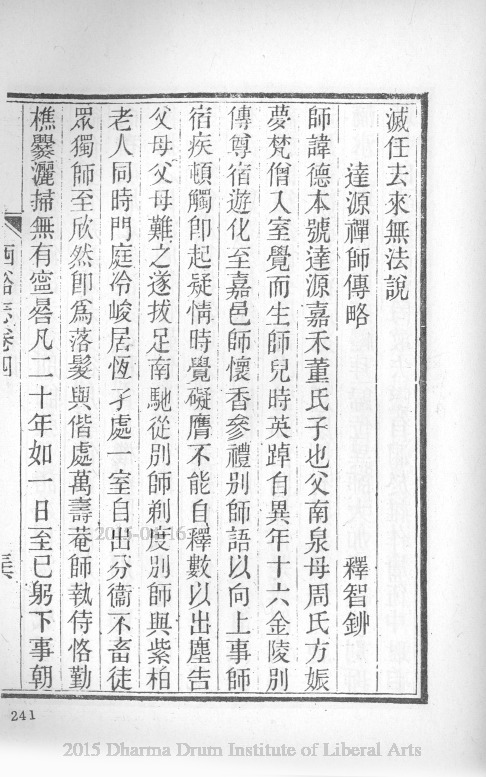 滅任去來無法說
達源禪師傳略　釋智𨥤
師諱德本號達源嘉禾董氏子也父南泉母周氏方娠
夢梵僧入室覺而生師兒時英踔自異年十六金陵別
傳尊宿遊化至嘉邑師懷香參禮別師語以向上事師
宿疾頓觸卽起疑情時覺礙膺不能自釋數以出塵告
父母父母難之遂拔足南馳從別師剃度別師與紫柏
老人同時門庭冷峻居恆孑處一室自出分衞不畜徒
眾獨師至欣然卽爲落髮與偕處萬壽菴師執侍恪勤
樵爨灑掃無有寍晷凡二十年如一日至已躬下事朝
241
2015 Dharma Drum Institute of Liberal Arts